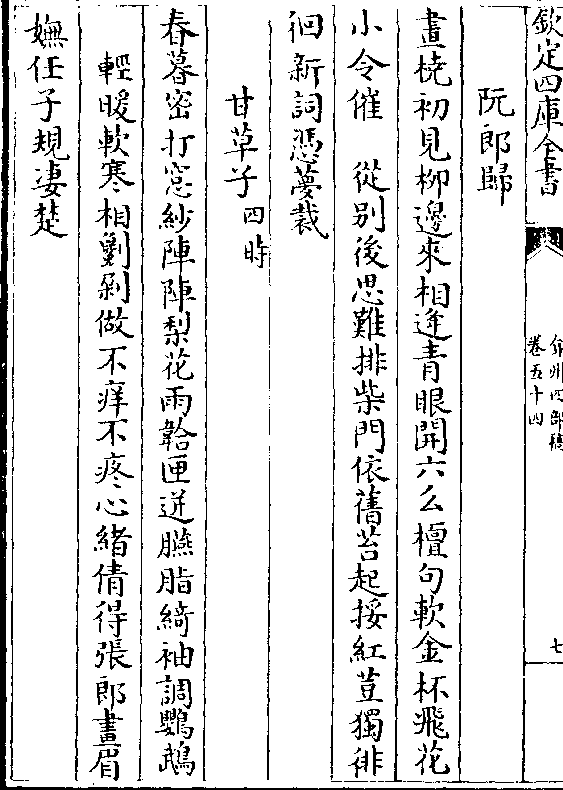 欽定四庫全書
弇州四部稿
卷五十四
七
阮郎歸
畫橈初見柳邊來相逢青眼開六么檀句軟金杯飛花
小令催　從别後思難排柴門依舊苔起挼紅荳獨徘
徊新詞憑夢裁
甘草子四時
春暮密打窓紗陣陣梨花雨鞈匣迸臙脂綺袖調鸚鵡
輕暖軟寒相剿剥做不痒不疼心緒倩得張郎畫眉
嫵任子規凄楚